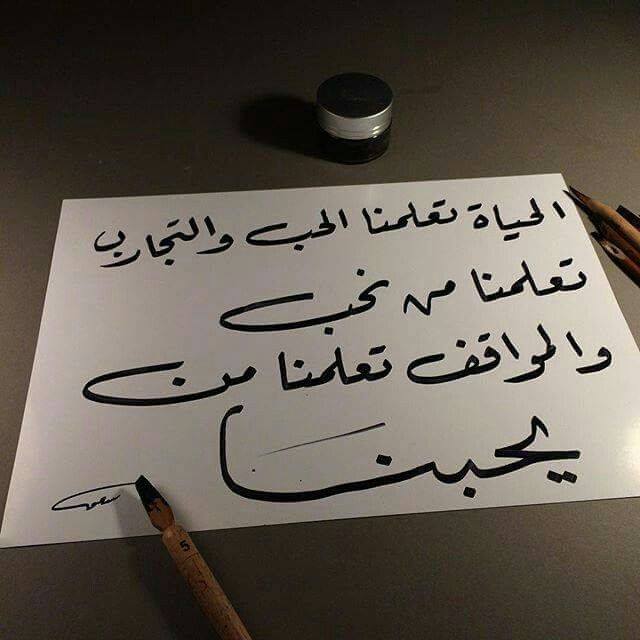 الحياة تعلمنا الحب والتجارب
تعلمنا من نحب
والمواقف تعلمنا من
يحبنا